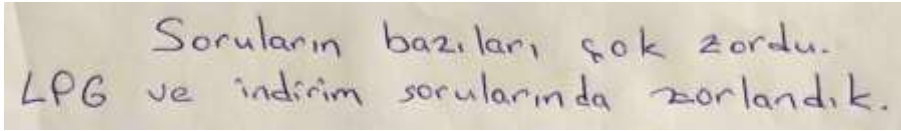 Soruların bazıları çok zordu.
LPG ve indirim sorularında zorlandık.